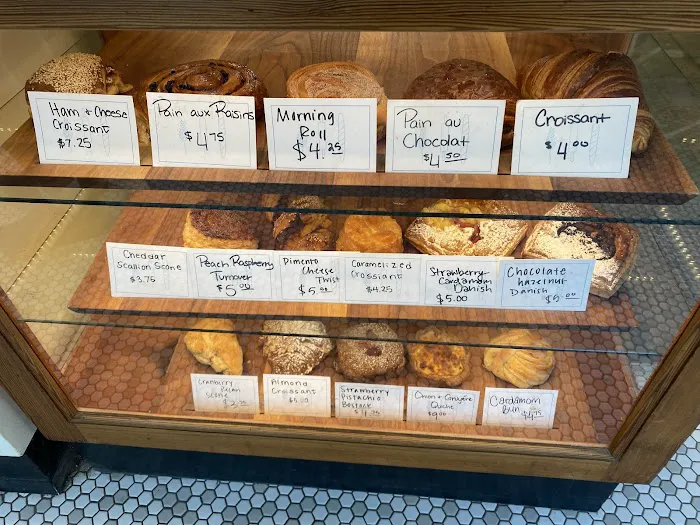 Ham + Cheese
Croissant
$7.25
Pain aux Raisins
$4.75
Morning
Roll
$4.25
Pain au
Chocolat
$4.50
Croissant
$4.00
Cheddar
Scallion Scone
$3.75
Peach Raspberry
Turnover
$5.00
Pimento
Cheese
Twist
$5.00
Caramelized
Crossiant
$4.25
Strawberry
Cardamom
Danish
$5.00
Chocolate
hazelnut
Danish
$5.00
Cranberry Pecan
Scone
Almond
Croissant
Strawberry
Pistachio
Bostock
Onion + Gruyere
Quiche
$9.00
Cardamom
Bun